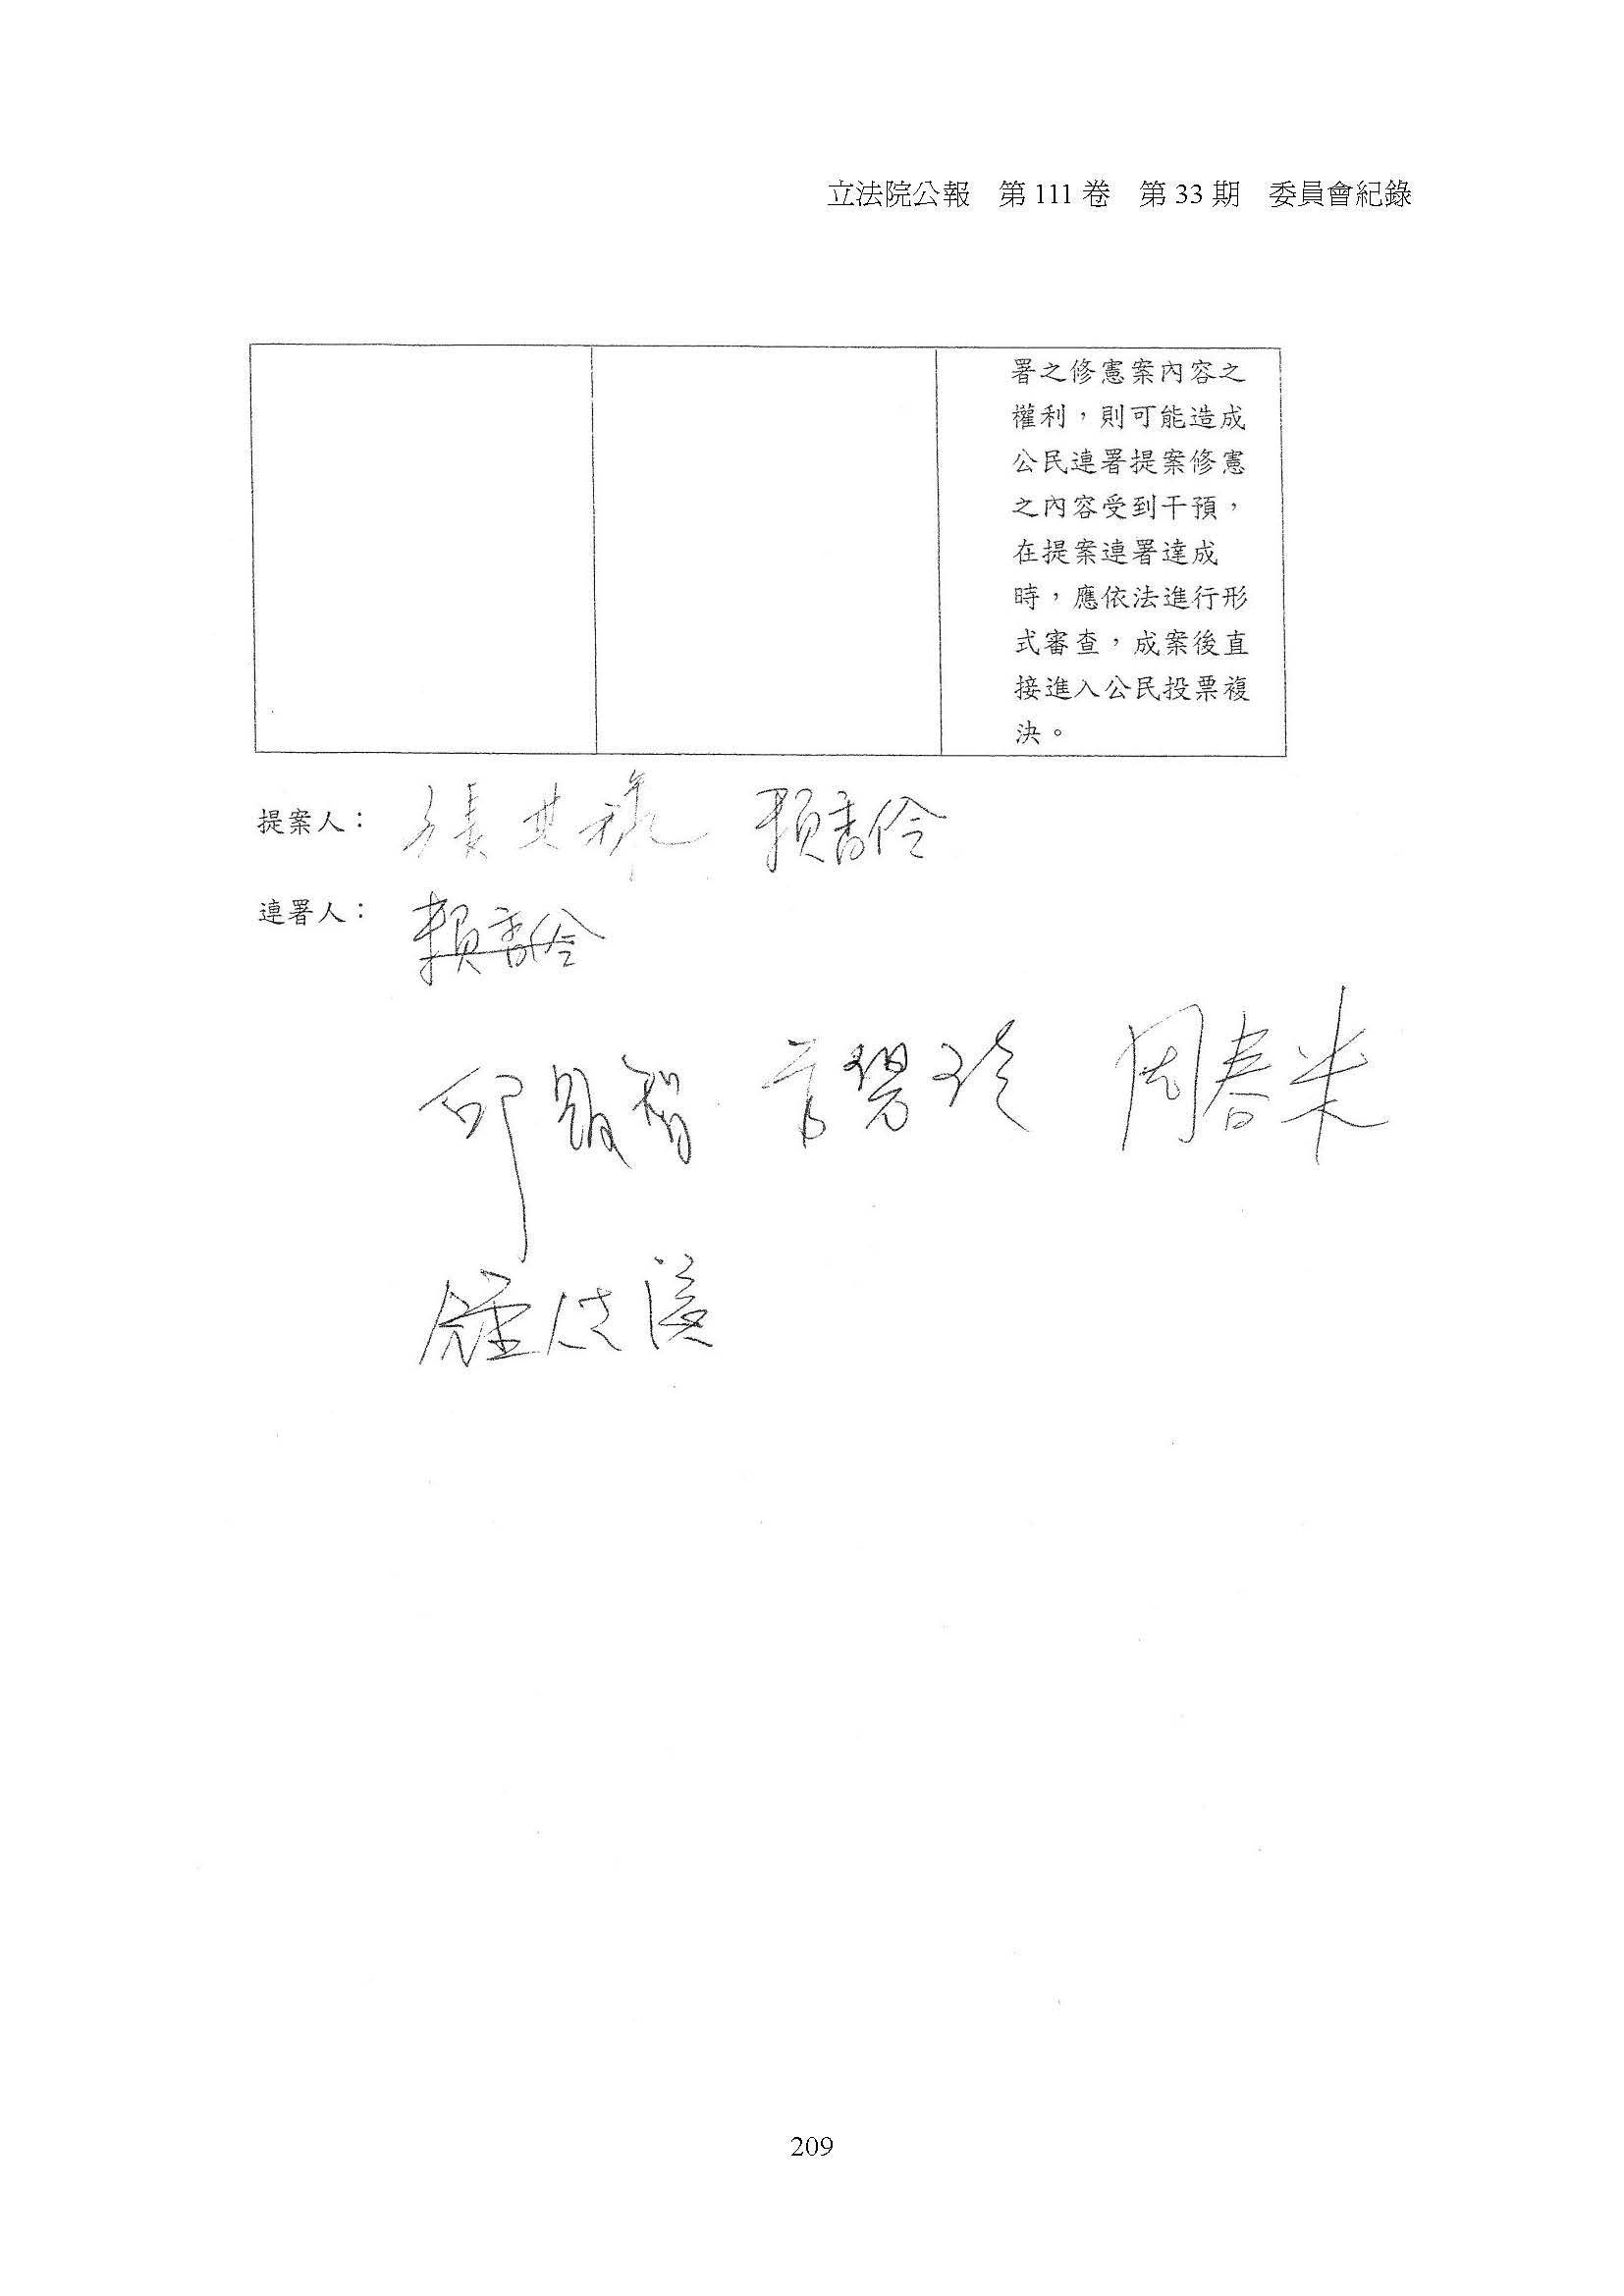 立法院公報　第 111 卷　第 33 期　委員會紀錄
署之修憲案內容之
權利，則可能造成
公民連署提案修憲
之內容受到干預，
在提案連署達成
時，應依法進行形
式審查，成案後直
接進入公民投票複
決。
提案人： 張其祿 賴香伶
連署人： 賴香伶
邱顯智 管碧玲 周春米
鍾佳濱
209